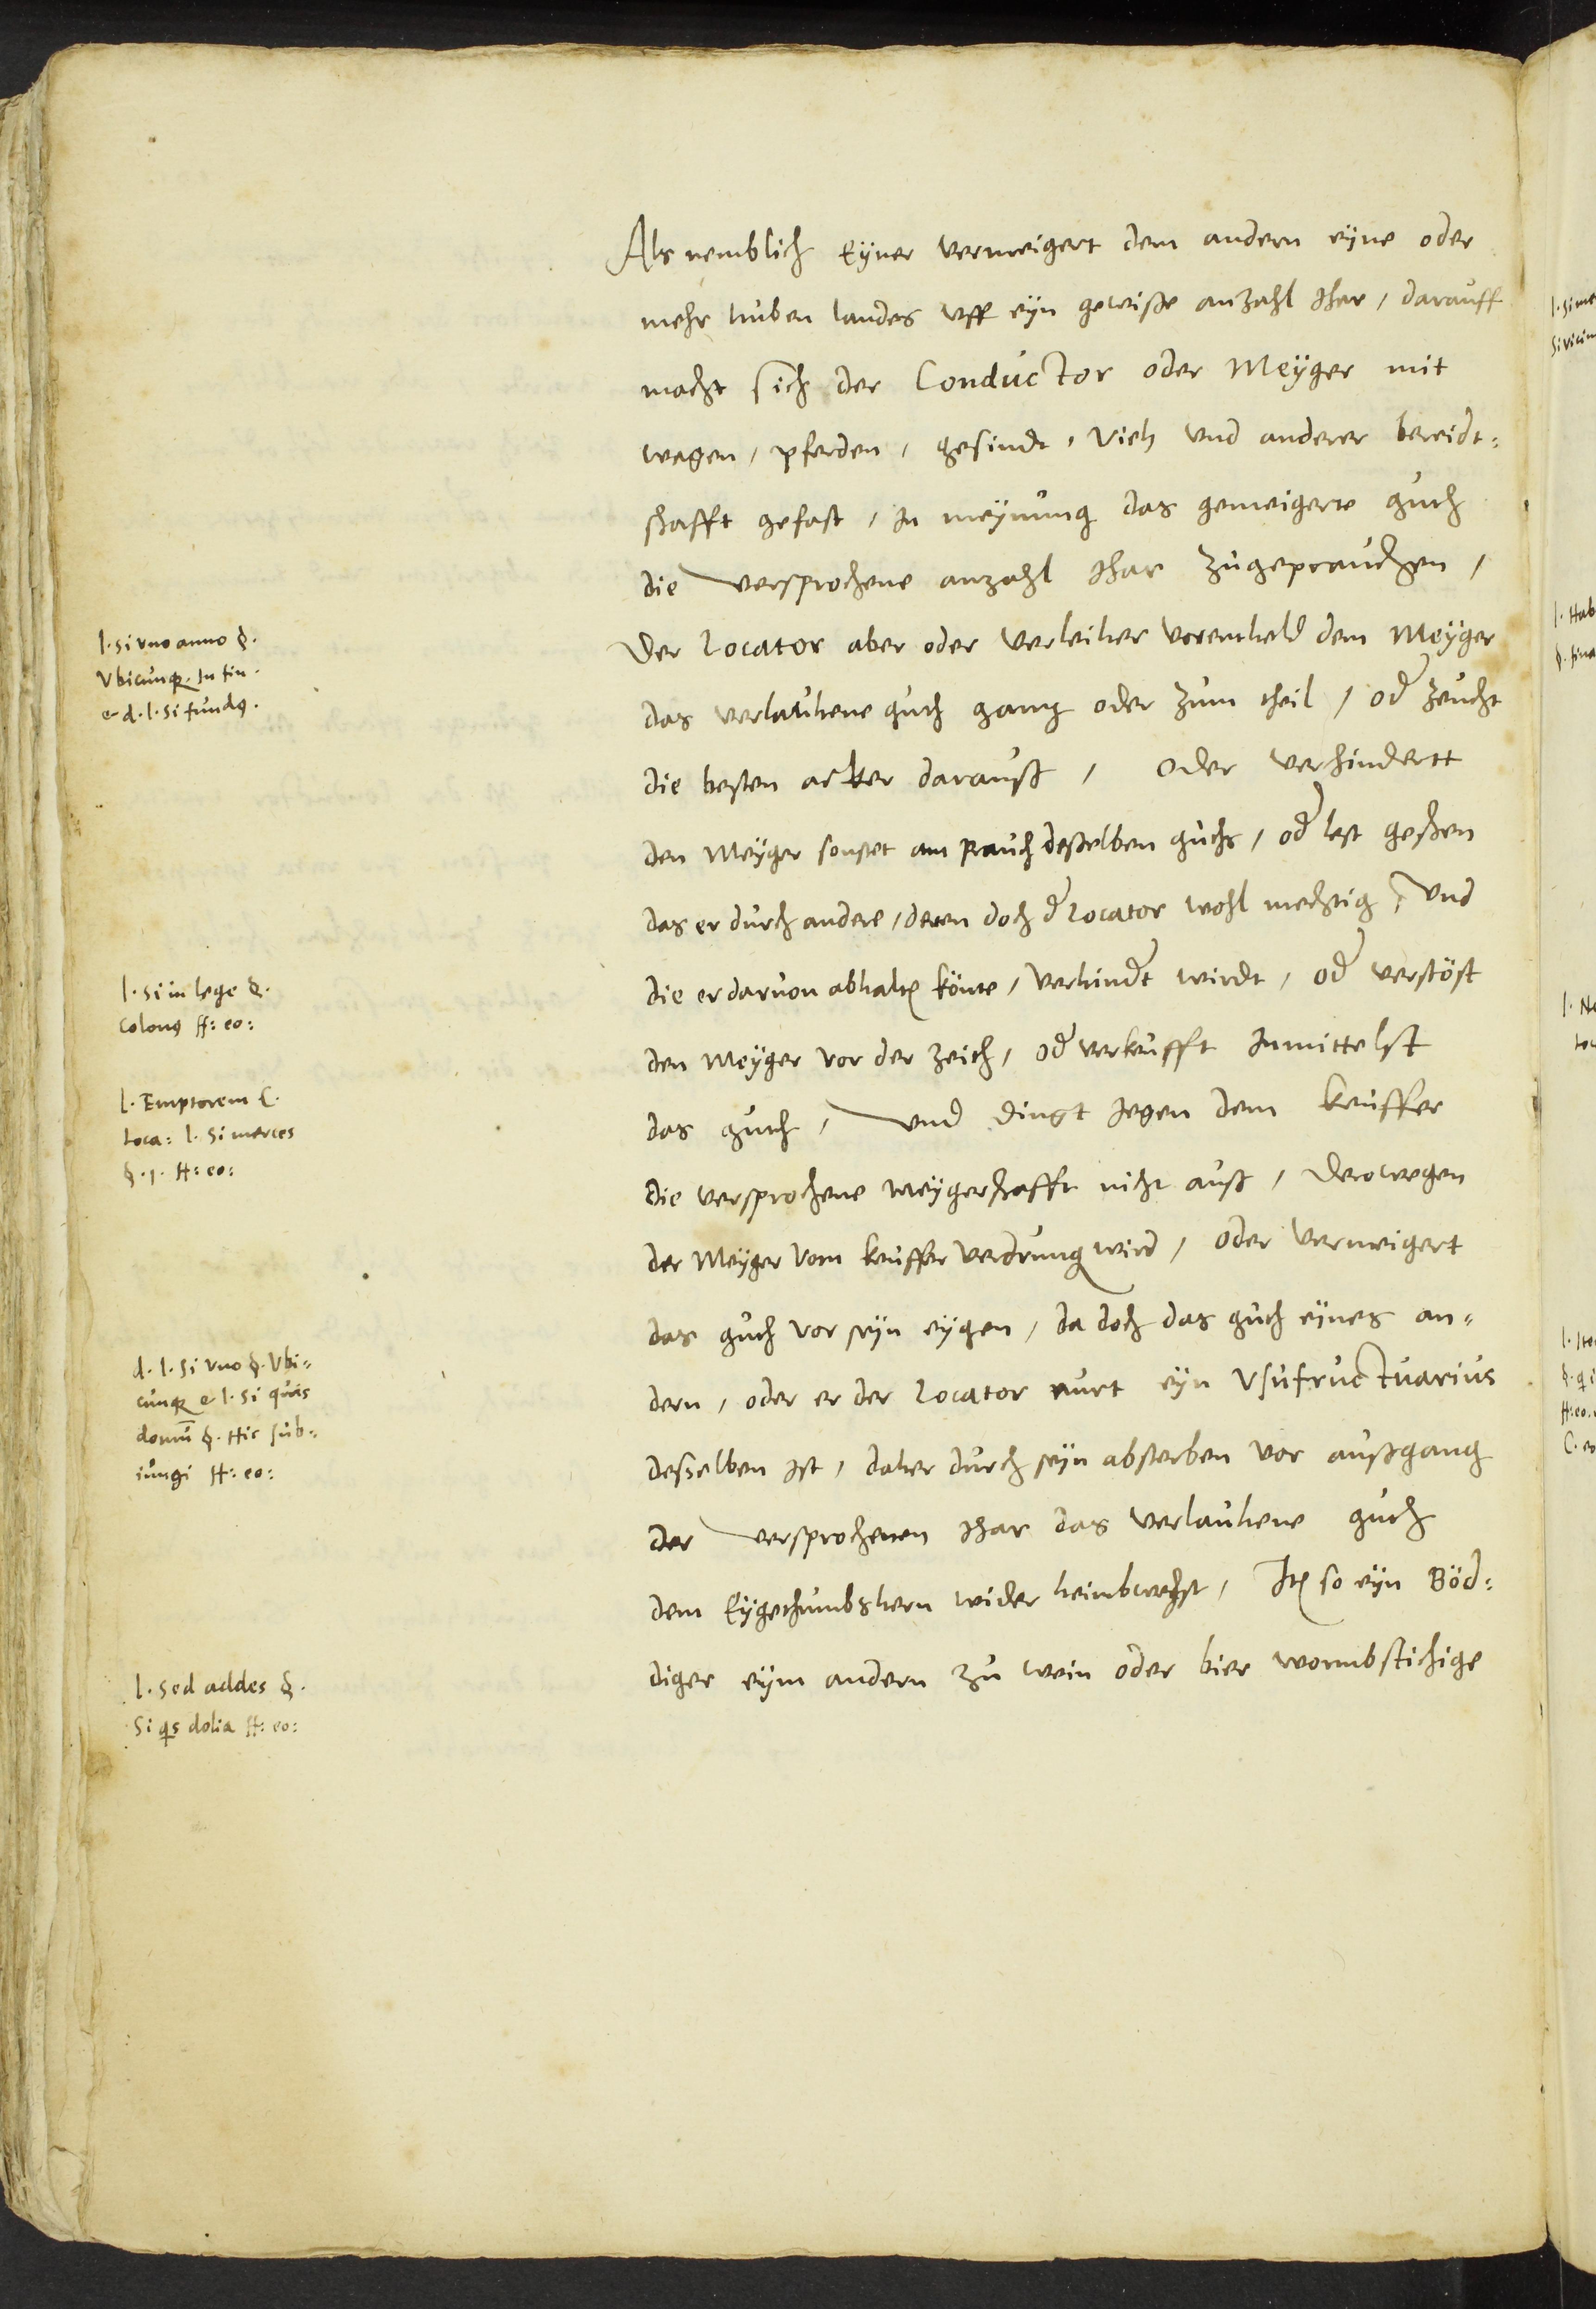 Als nemblich Eyner vermeigert dem andern eyne oder
mehr huben landes vff eyn gewisse anzahl Jhar, darauff
macht sich der Conductor oder Meÿger mit
wagen, pferden, gesindt, Vieh vnd anderer bereidt-
schafft gefast, In meÿnung das gemeigerte guth
die versprochene anzahl Jhar zugeprauchen,
Der Locator aber oder Verleiher vorentheld dem Meÿger
das verlauhene guth gantz oder zum theil, od zeucht
die besten acker darauß, oder verhindertt
den Meÿger sonstet am prauch desselben guths, od lest geschen
das er durch andere, deren doch d Locator wohl mechtig, vnd
die er daruon abhalten könte, verhindt wirdt, od verstöst
den Meÿger vor der zeith, od verkeufft Inmittelst
das guth, vnd dingt Jegen dem keuffer
die versprochene Meÿgerschafft nicht auß, Derowegen
der Meÿger vom keuffer verdrungen wird, oder vermeigert
das guth vor seyn eÿgen, da doch das guth eÿnes an-
dern, oder er der Locator nurt eÿn Vsufructuarius
desselben Ist, daher durch seÿn absterben vor außgang
der versprochenen Jhar das verlauhene guth
dem Eÿgethumbshern wider heimbwechst, Itē so eÿn Böd-
diger eÿm andern zu wein oder bier wormbstichige
l. si vno anno §.
Vbicunq. In fin.
et d. l. si fundus.
l. si in lege §.
colonus ff: eo:
l. Emptorem C.
Loca: l. si merces
§. 1. ff: eo:
d. l. si vno §. Vbi-
cunq et l. si quis
domū §. Hic sub-
iungi ff: eo:
l. sed addes §.
Si qs dolia ff: eo: